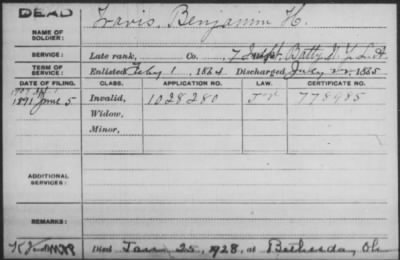 DEAD
Travis, Benjamin H.
NAME OF SOLDIER:
SERVICE: Late rank, Co. 7 Indpt. Batty N.Y. L.A.
TERM OF SERVICE: Enlisted Feby 1, 1864. Discharged July 22, 1865
DATE OF FILING. CLASS. APPLICATION NO. LAW. CERTIFICATE NO.
1891 June 5 Invalid, 1028280 778985
Widow,
Minor,
ADDITIONAL SERVICES:
REMARKS:
Died Jan 25, 1928, at Bethesda, Oh